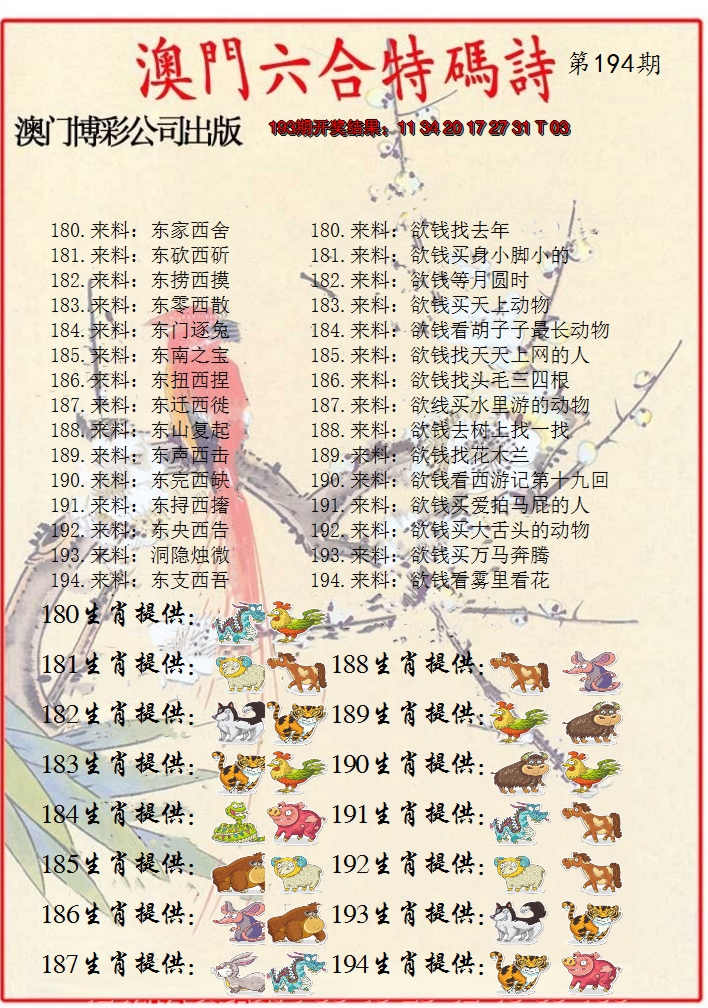 澳門六合特碼詩 第194期
澳门博彩公司出版 193期开奖结果：11 34 20 17 27 31 T 03
180.来料：东家西舍 180.来料：欲钱找去年
181.来料：东砍西斫 181.来料：欲钱买身小脚小的
182.来料：东捞西摸 182.来料：欲钱等月圆时
183.来料：东零西散 183.来料：欲钱买天上动物
184.来料：东门逐兔 184.来料：欲钱看胡子子最长动物
185.来料：东南之宝 185.来料：欲钱找天天上网的人
186.来料：东扭西捏 186.来料：欲钱找头毛三四根
187.来料：东迁西徙 187.来料：欲线买水里游的动物
188.来料：东山复起 188.来料：欲钱去树上找一找
189.来料：东声西击 189.来料：欲钱找花木兰
190.来料：东完西缺 190.来料：欲钱看西游记第十九回
191.来料：东挦西撦 191.来料：欲钱买爱拍马屁的人
192.来料：东央西告 192.来料：欲钱买大舌头的动物
193.来料：洞隐烛微 193.来料：欲钱买万马奔腾
194.来料：东支西吾 194.来料：欲钱看雾里看花
180生肖提供：
181生肖提供： 188生肖提供：
182生肖提供： 189生肖提供：
183生肖提供： 190生肖提供：
184生肖提供： 191生肖提供：
185生肖提供： 192生肖提供：
186生肖提供： 193生肖提供：
187生肖提供： 194生肖提供：